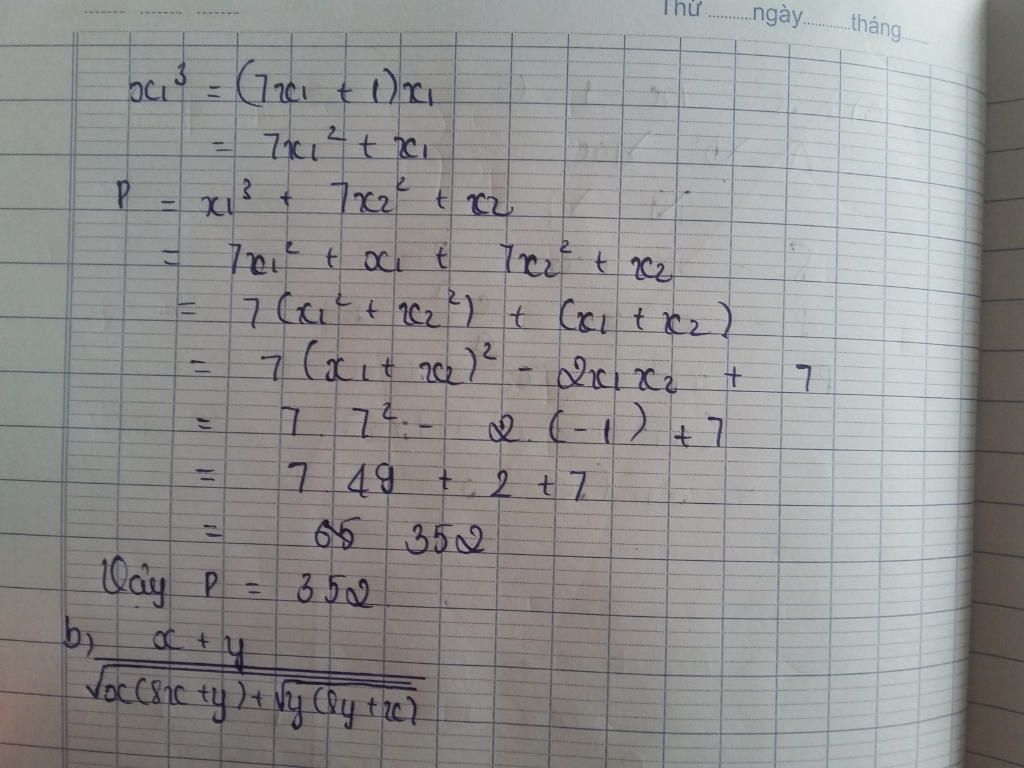 Thứ ..........ngày..........tháng......
x₁³ = (7x₁ + 1)x₁
= 7x₁² + x₁
P = x₁³ + 7x₂² + x₂
= 7x₁² + x₁ + 7x₂² + x₂
= 7(x₁² + x₂²) + (x₁ + x₂)
= 7(x₁ + x₂)² - 2x₁x₂ + 7
= 7. 7² - 2.(-1) + 7
= 7 49 + 2 + 7
= 352
Vậy P = 352
b, x + y
√x(8x + y) + √y(8y + x)